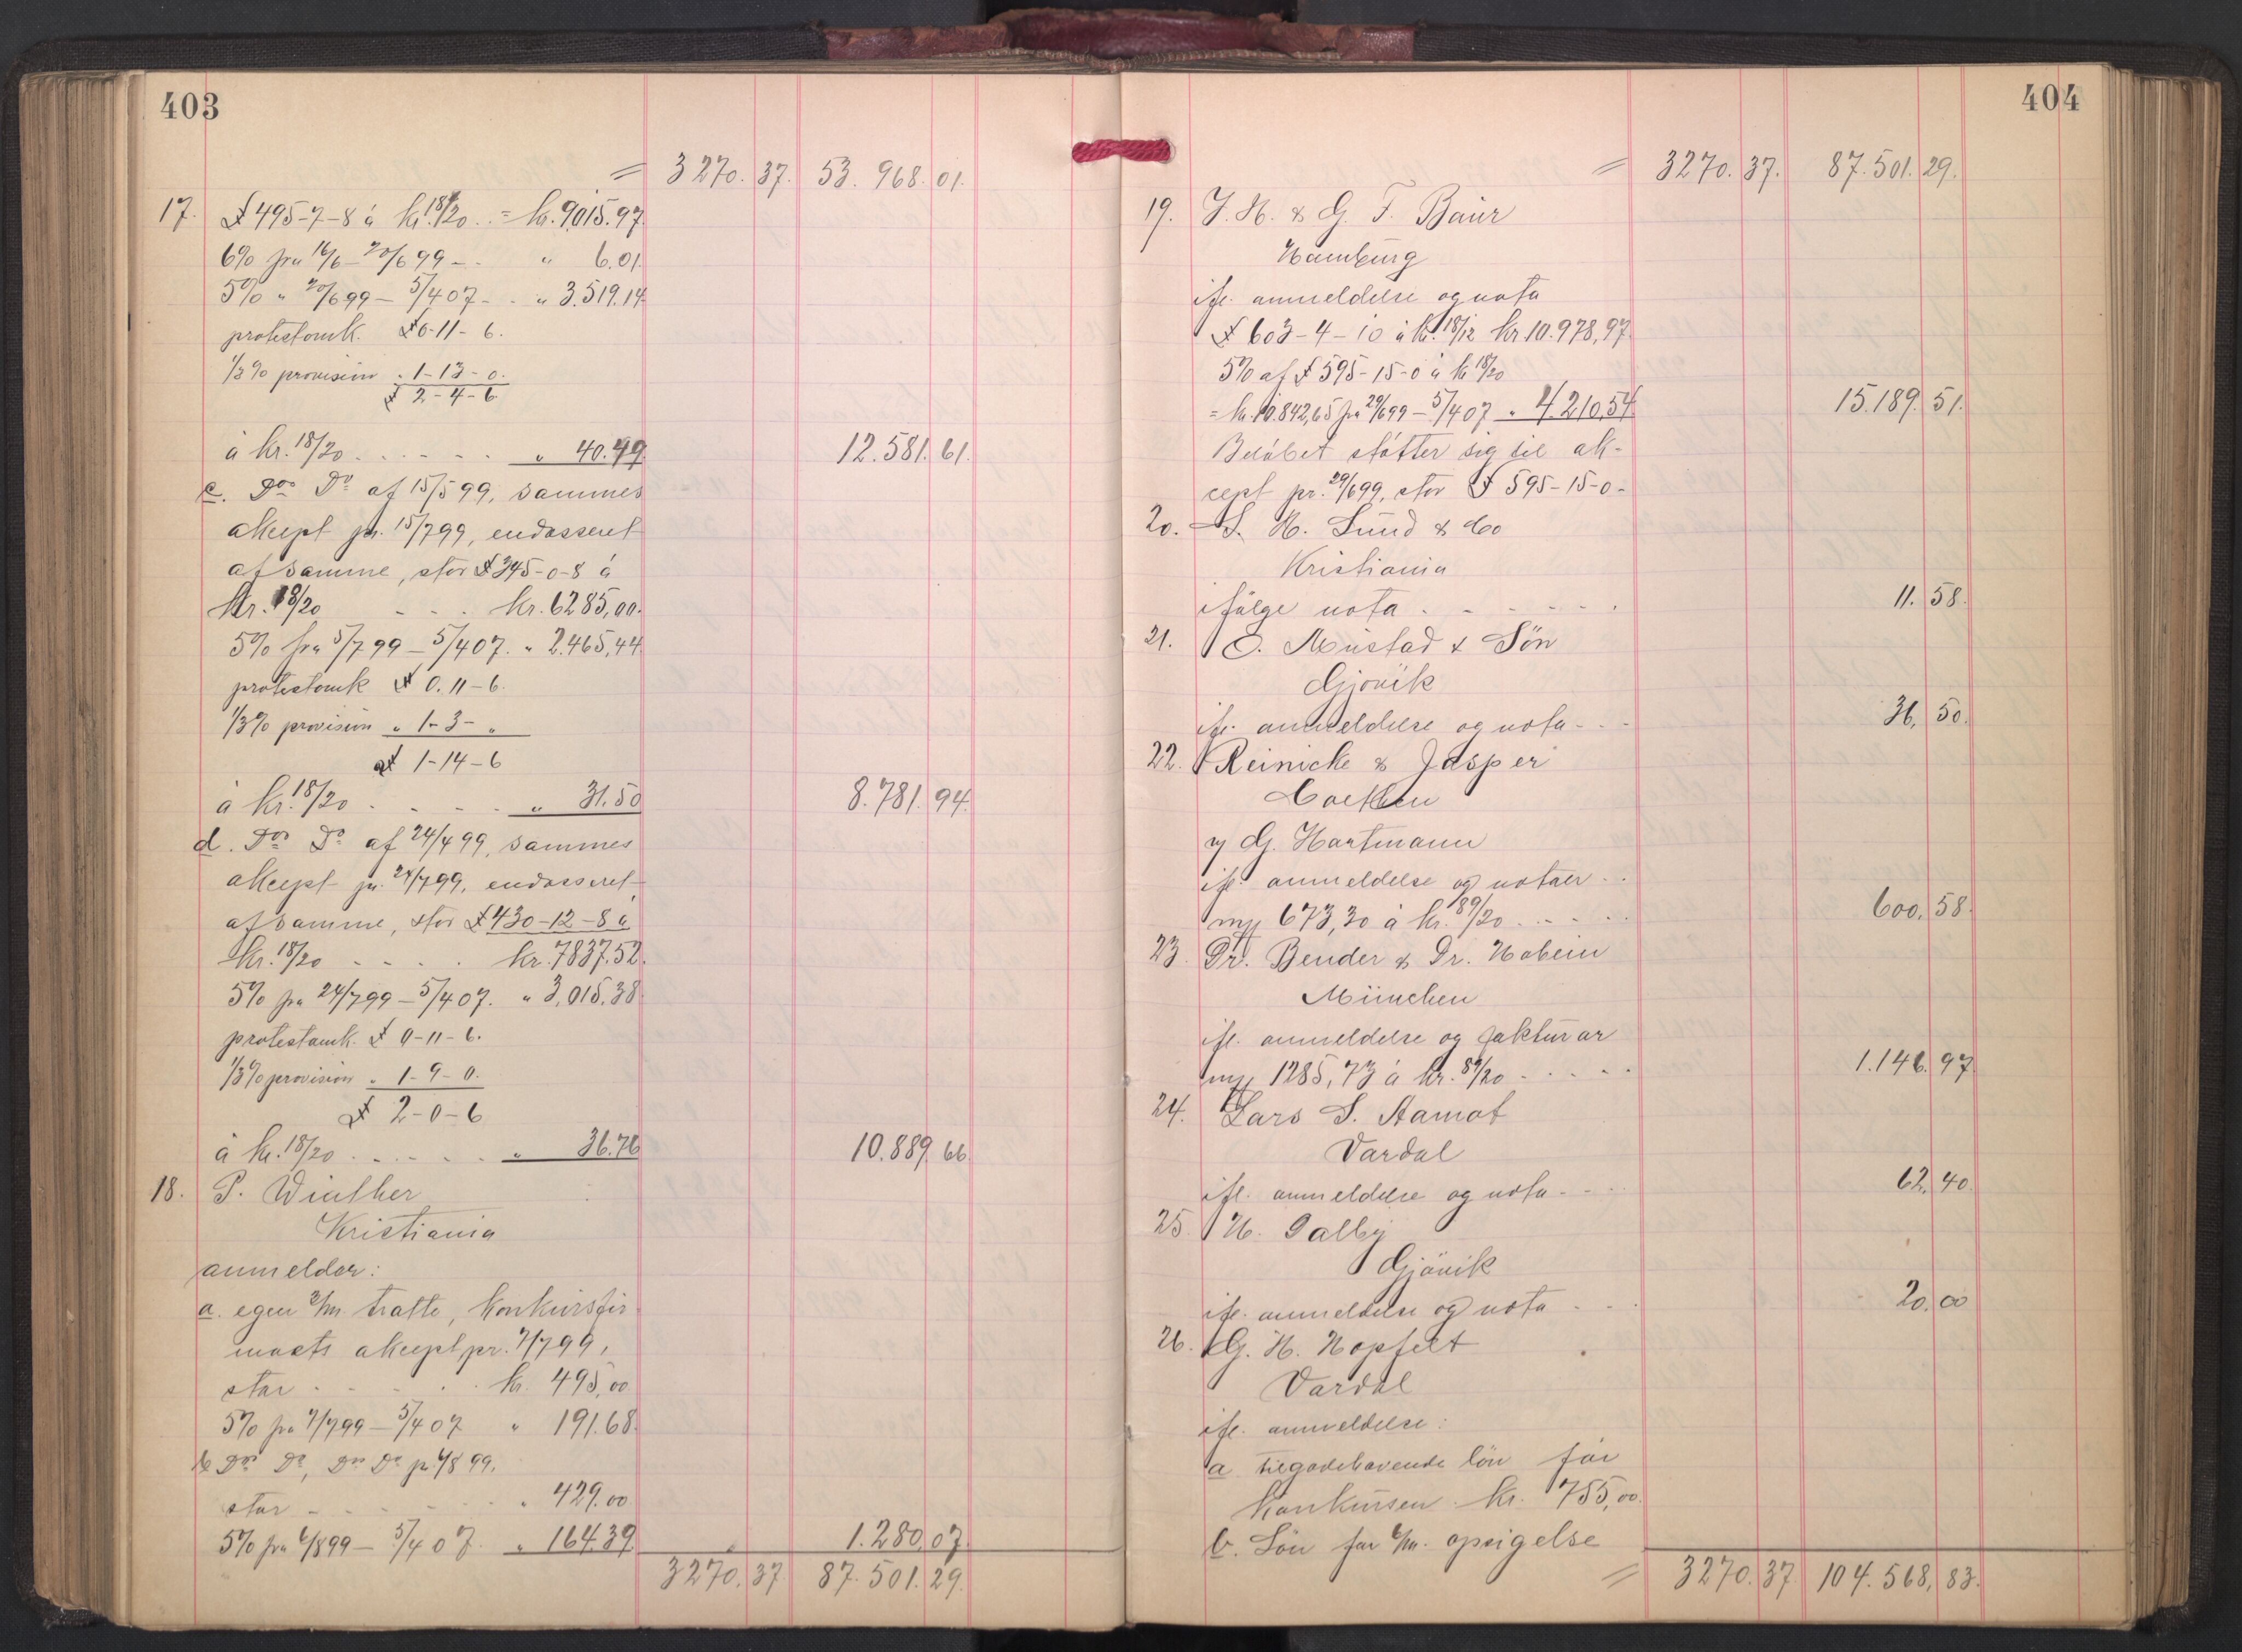 403
= 3270. 37. 53. 968. 01.
17. £ 495-7-8 á kr. 18/20 .. = kr. 9,015.97.
6% fra 16/6 - 20/6 99 - . " 6.01.
5% " 20/6 99 - 5/4 07 - . " 3.519.14
protestomk. £ 0-11-6.
1/3% provision " 1-13-0.
£ 2-4-6
á kr. 18/20 . . . . . " 40.49 12.581. 61.
c. Dos Do af 15/5 99, sammes
akcept pr. 15/7 99, endosseret
af samme, stor £ 345-0-8 á
kr. 18/20 - - . kr. 6285,00.
5% fra 15/7 99 - 5/4 07. " 2.465,44
protestomk £ 0.11-6.
1/3% provision " 1-3- "
£ 1-14-6
á kr. 18/20 . - . - . " 31.50 8.781. 94.
d. Dos Do af 24/4 99, sammes
akcept pr. 24/7 99, endosseret
af samme, stor £ 430-12-8 á
kr. 18/20 - - . . kr. 7837.52.
5% fra 24/7 99 - 5/4 07. " 3,015,38
protestomk. £ 0-11-6.
1/3% provision " 1-9-0.
£ 2-0-6
á kr. 18/20 . - . - . " 36.76 10.889. 66.
18. P. Winther
Kristiania
anmelder:
a. egen 3/m. tratte, konkursfir
maets akcept pr. 7/7 99,
stor - - - . . kr. 495,00
5% fra 7/7 99 - 5/4 07 " 191.68.
b Dos Do, Dos Do pr. 6/8 99,
stor - - - - . . " 429.00.
5% fra 6/8 99 - 5/4 07. " 164.39 1.280,07.
3270. 37. 87. 501. 29.
404
= 3270. 37. 87. 501. 29.
19. J. H. & G. F. Baur
Hamburg
ifl. anmeldelse og nota
£ 603-4-10 á kr. 18/12 kr. 10.978,97.
5% af £ 595-15-0 á kr 18/20
= kr. 10.842,65 fra 29/6 99 - 5/4 07 " 4.210,54 15.189. 51.
Belöbet støtter sig til ak-
cept pr. 29/6 99, stor £ 595-15-0-
20. S. H. Lund & Co
Kristiania
ifölge nota . - - - - - . 11. 58.
21. O. Mustad & Sön
Gjövik
ifl. anmeldelse og nota - . - 36. 50.
22. Reinicke & Jasper
Coethen
v/ G. Hartmann
ifl. anmeldelse og notaer . .
my 673,30 á kr. 89/20 . - - . . 600. 58.
23. Dr. Bender & Dr. Hobein
München
ifl. anmeldelse og fakturar
my 1285,73 á kr. 89/20 - . . - . 1.146. 97
24. Lars S. Aamot
Vardal
ifl. anmeldelse og nota - - . 62. 40.
25. H. Dalby
Gjövik
ifl. anmeldelse og nota - . . 20. 00
26. G. H. Hopfelt
Vardal
ifl. anmeldelse:
a tilgodehavende lön før
konkursen kr. 755,00.
b. Lön for 6/m. opsigelse
= 3270. 37 104. 568, 83.